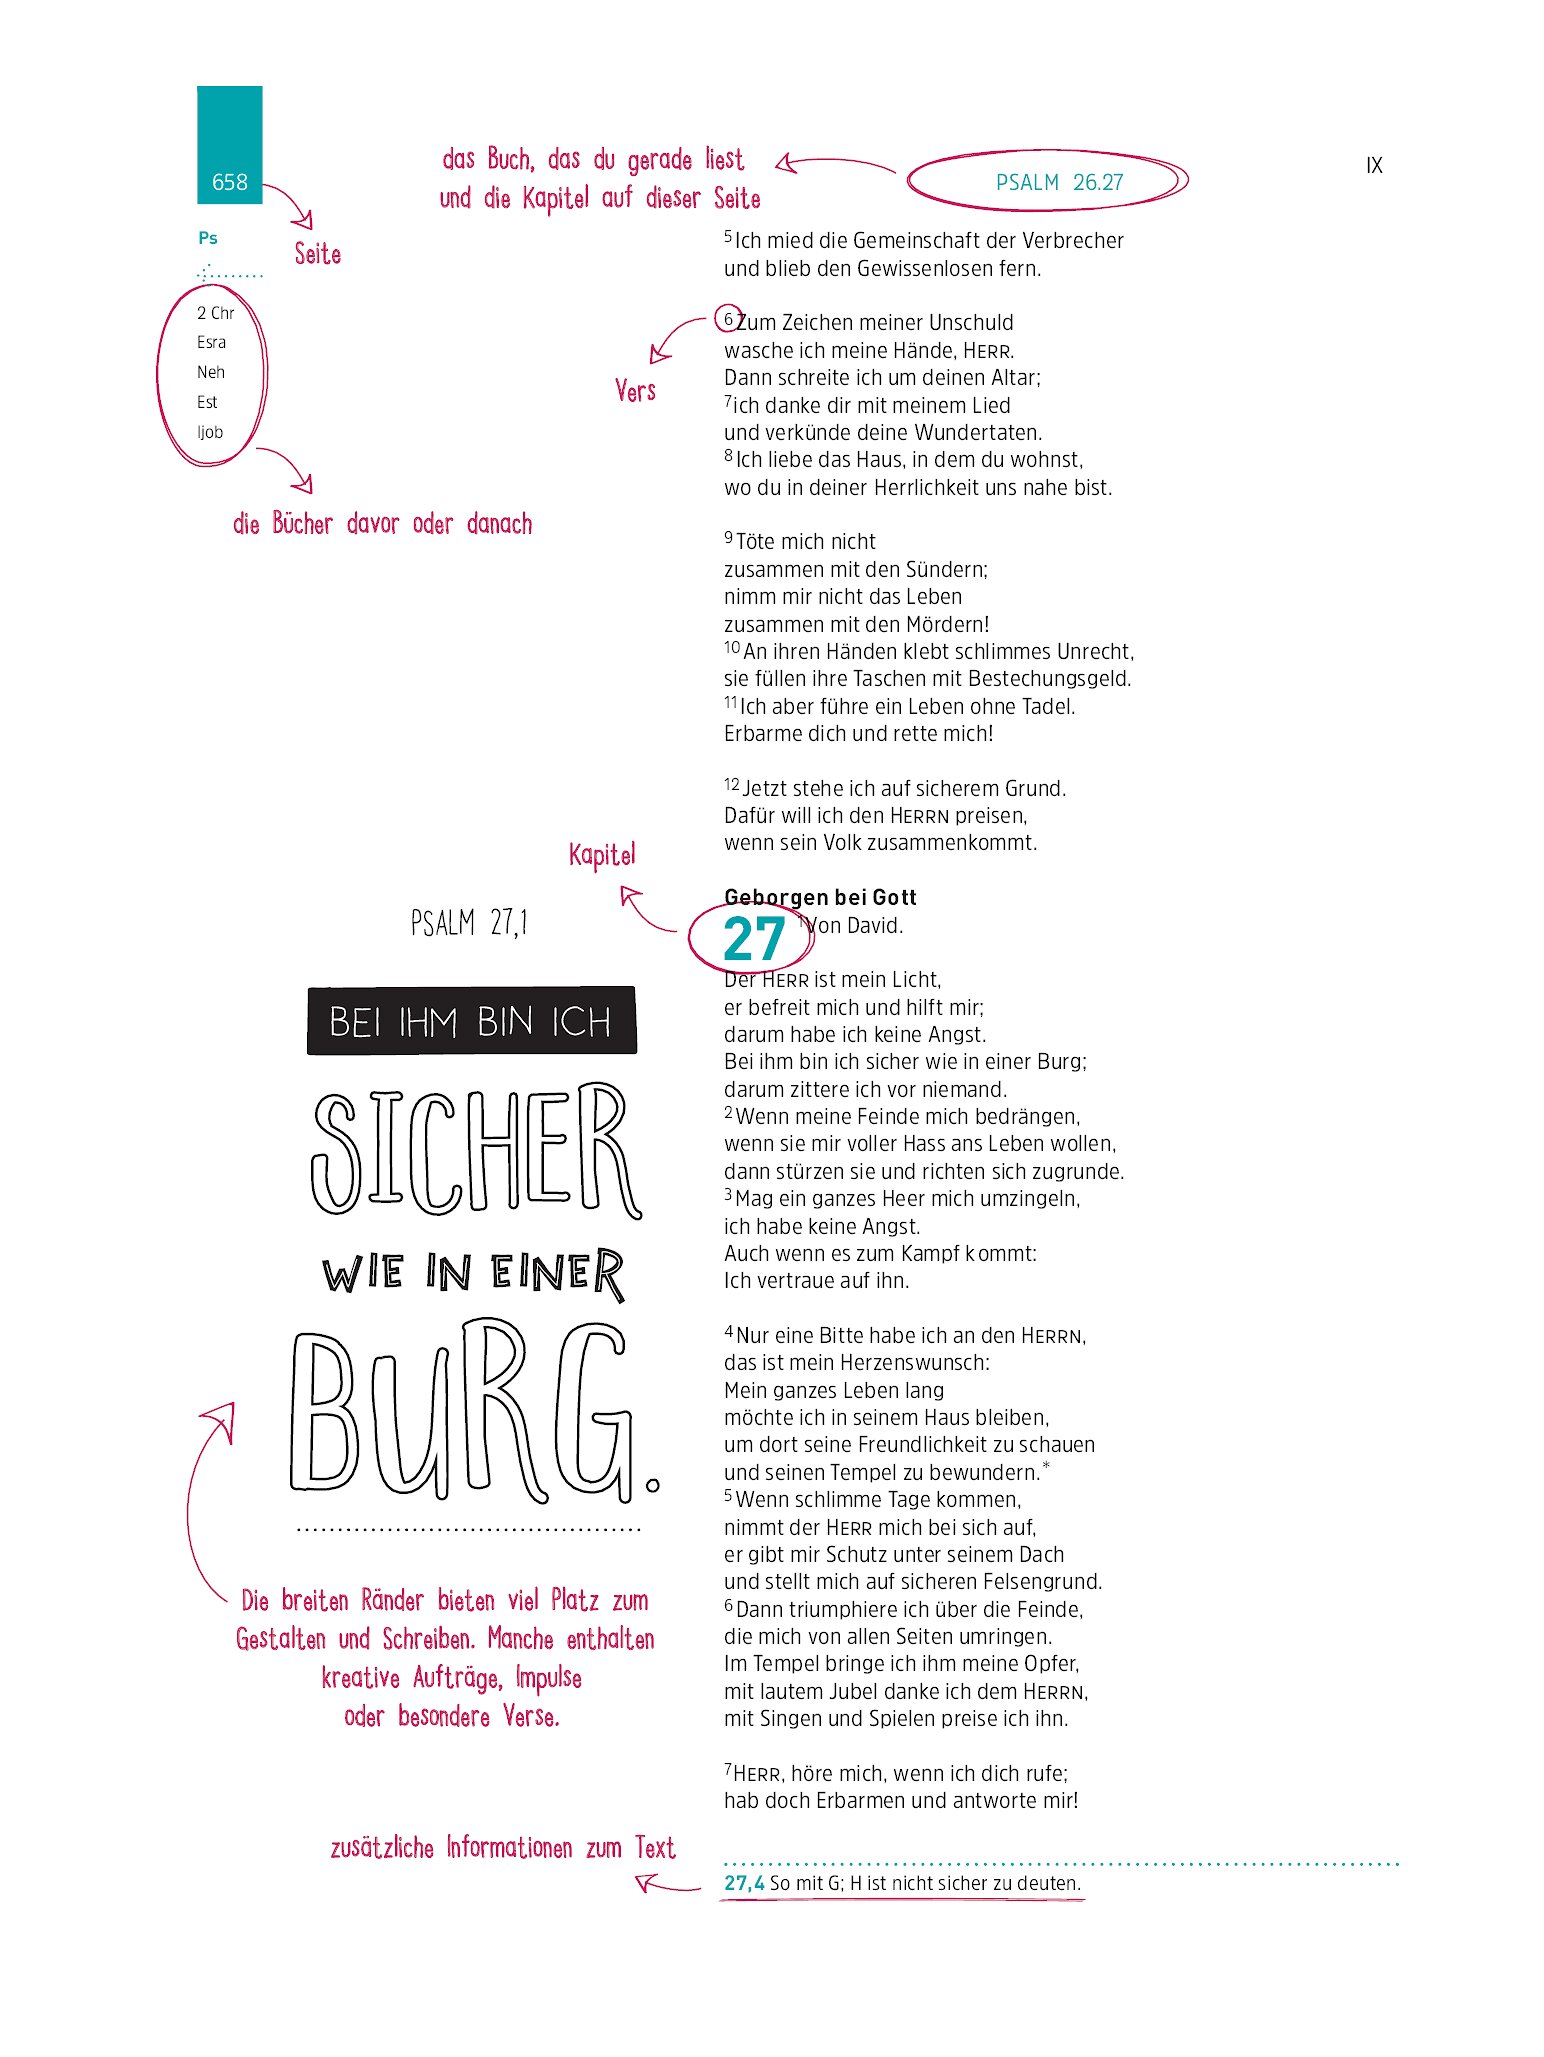 658
das Buch, das du gerade liest
und die Kapitel auf dieser Seite
PSALM 26.27
IX
Ps
Seite
2 Chr
Esra
Neh
Est
Ijob
die Bücher davor oder danach
5 Ich mied die Gemeinschaft der Verbrecher
und blieb den Gewissenlosen fern.
Vers
6 Zum Zeichen meiner Unschuld
wasche ich meine Hände, HERR.
Dann schreite ich um deinen Altar;
7 ich danke dir mit meinem Lied
und verkünde deine Wundertaten.
8 Ich liebe das Haus, in dem du wohnst,
wo du in deiner Herrlichkeit uns nahe bist.
9 Töte mich nicht
zusammen mit den Sündern;
nimm mir nicht das Leben
zusammen mit den Mördern!
10 An ihren Händen klebt schlimmes Unrecht,
sie füllen ihre Taschen mit Bestechungsgeld.
11 Ich aber führe ein Leben ohne Tadel.
Erbarme dich und rette mich!
12 Jetzt stehe ich auf sicherem Grund.
Dafür will ich den HERRN preisen,
wenn sein Volk zusammenkommt.
Kapitel
Geborgen bei Gott
27 1 Von David.
Der HERR ist mein Licht,
er befreit mich und hilft mir;
darum habe ich keine Angst.
Bei ihm bin ich sicher wie in einer Burg;
darum zittere ich vor niemand.
2 Wenn meine Feinde mich bedrängen,
wenn sie mir voller Hass ans Leben wollen,
dann stürzen sie und richten sich zugrunde.
3 Mag ein ganzes Heer mich umzingeln,
ich habe keine Angst.
Auch wenn es zum Kampf kommt:
Ich vertraue auf ihn.
4 Nur eine Bitte habe ich an den HERRN,
das ist mein Herzenswunsch:
Mein ganzes Leben lang
möchte ich in seinem Haus bleiben,
um dort seine Freundlichkeit zu schauen
und seinen Tempel zu bewundern.*
5 Wenn schlimme Tage kommen,
nimmt der HERR mich bei sich auf,
er gibt mir Schutz unter seinem Dach
und stellt mich auf sicheren Felsengrund.
6 Dann triumphiere ich über die Feinde,
die mich von allen Seiten umringen.
Im Tempel bringe ich ihm meine Opfer,
mit lautem Jubel danke ich dem HERRN,
mit Singen und Spielen preise ich ihn.
7 HERR, höre mich, wenn ich dich rufe;
hab doch Erbarmen und antworte mir!
PSALM 27,1
BEI IHM BIN ICH
SICHER
WIE IN EINER
BURG.
Die breiten Ränder bieten viel Platz zum
Gestalten und Schreiben. Manche enthalten
kreative Aufträge, Impulse
oder besondere Verse.
zusätzliche Informationen zum Text
27,4 So mit G; H ist nicht sicher zu deuten.